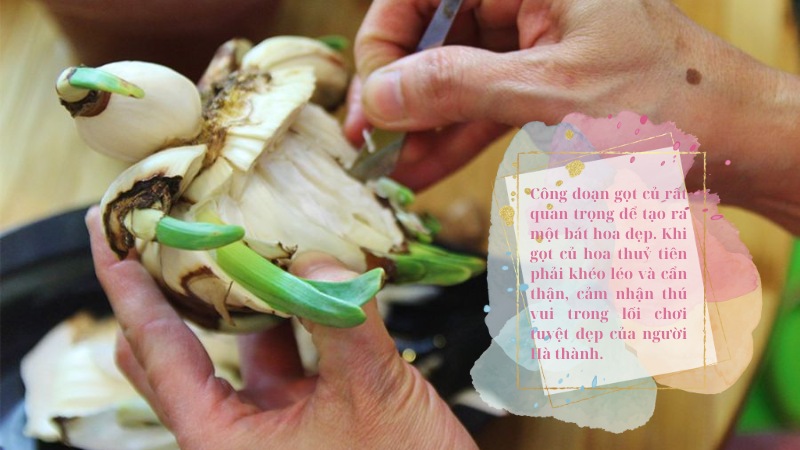 Công đoạn gọt củ rất
quan trọng để tạo ra
một bát hoa đẹp. Khi
gọt củ hoa thuỷ tiên
phải khéo léo và cẩn
thận, cảm nhận thú
vui trong lối chơi
tuyệt đẹp của người
Hà thành.